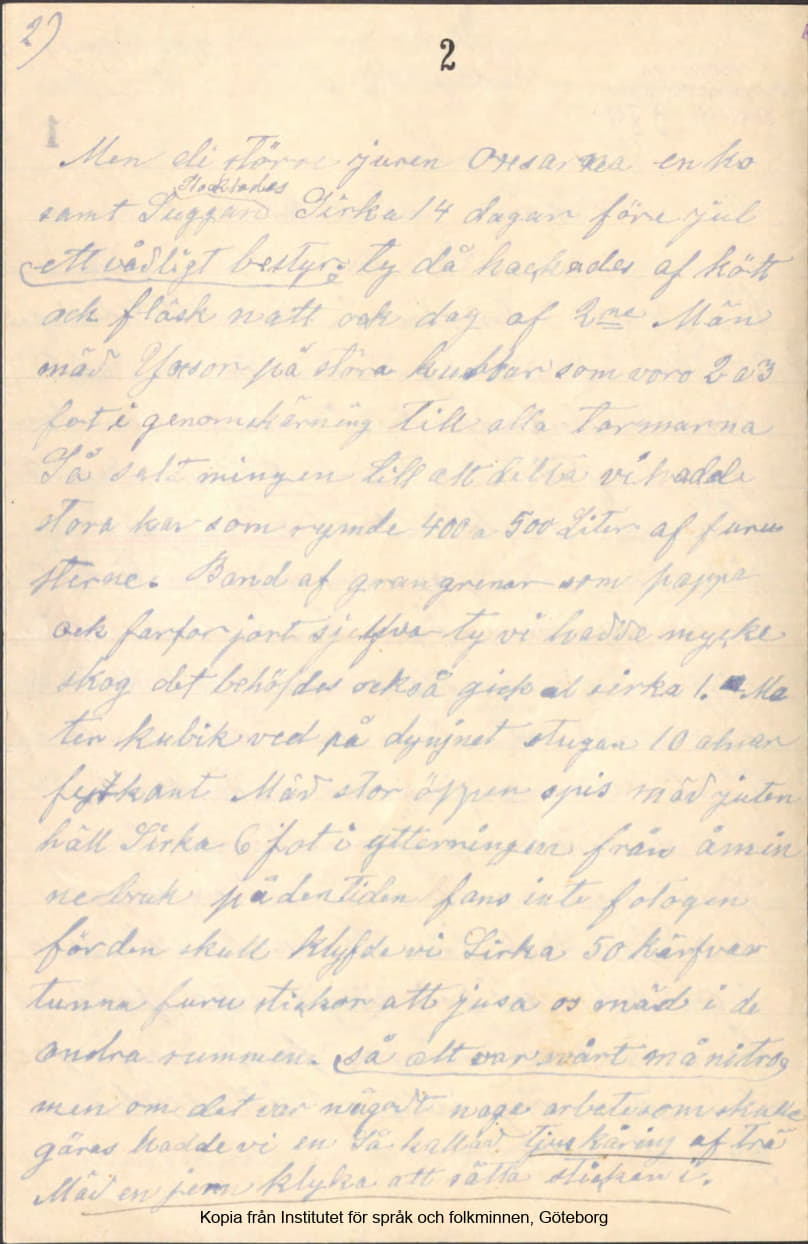 2)
2
Men di större juren Oxsarna en ko
Slacktades
samt Suggan Sirka 14 dagar före jul
ett vådligt bestyr: ty då hackades af kött
ock fläsk natt ock dag af 2ne Män
mäd Yxsor på stora kubbar som voro 2 a 3
fot i genomskärning till alla tarmarna
Så saltningen till alt detta vi hadde
stora kar som rymde 400 a 500 Liter af furu
sterne. Band af grangrenar som pappa
ock farfar jort sjelfva ty vi hadde mycke
skog det behöfdes också gick al sirka 1. Me
ter kubik ved på dyngnet stugan 10 alnar
fyrkant Mäd stor öppen spis mäd juten
häll Sirka 6 fot i ytterningen från åmin
ne bruk på den tiden fans inte fotogen
för den skull klyfde vi Sirka 50 kärfvar
tunna furu stickor att jusa os mäd i de
andra rummen. så alt var svårt må ni tro
men om det var någodt noga arbete som skulle
göras hadde vi en Så kallad. tjus käring af trä
Mäd en jern klyka att sätta stickan i.
Kopia från Institutet för språk och folkminnen, Göteborg